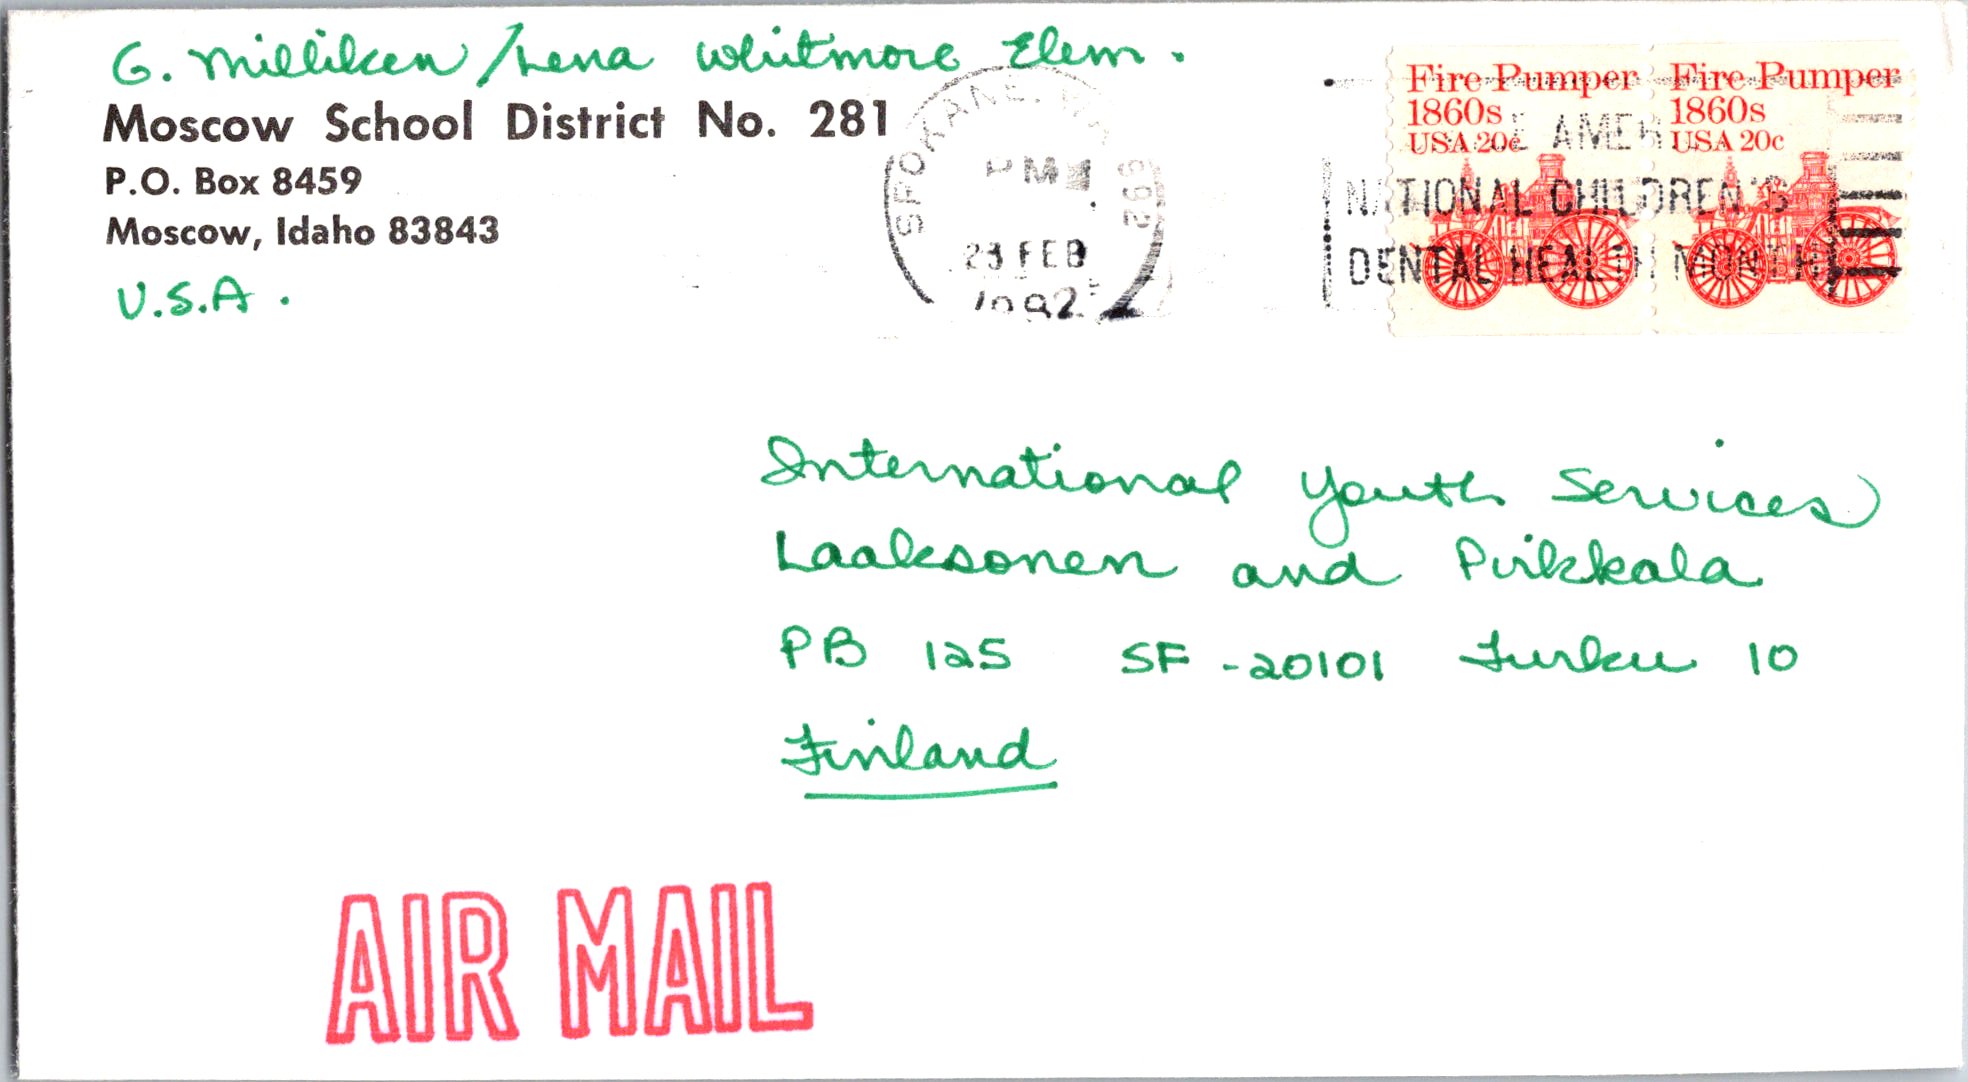 G. Milliken / Lena Whitmore Elem.
Moscow School District No. 281
P.O. Box 8459
Moscow, Idaho 83843
U.S.A.
SPOKANE, WA 992
PM
FEB
1992
Fire Pumper
1860s
USA 20c
Fire Pumper
1860s
USA 20c
NATIONAL CHILDREN'S
DENTAL HEALTH MONTH
International Youth Services
Laaksonen and Pirkkala
PB 125 SF-20101 Turku 10
Finland
AIR MAIL